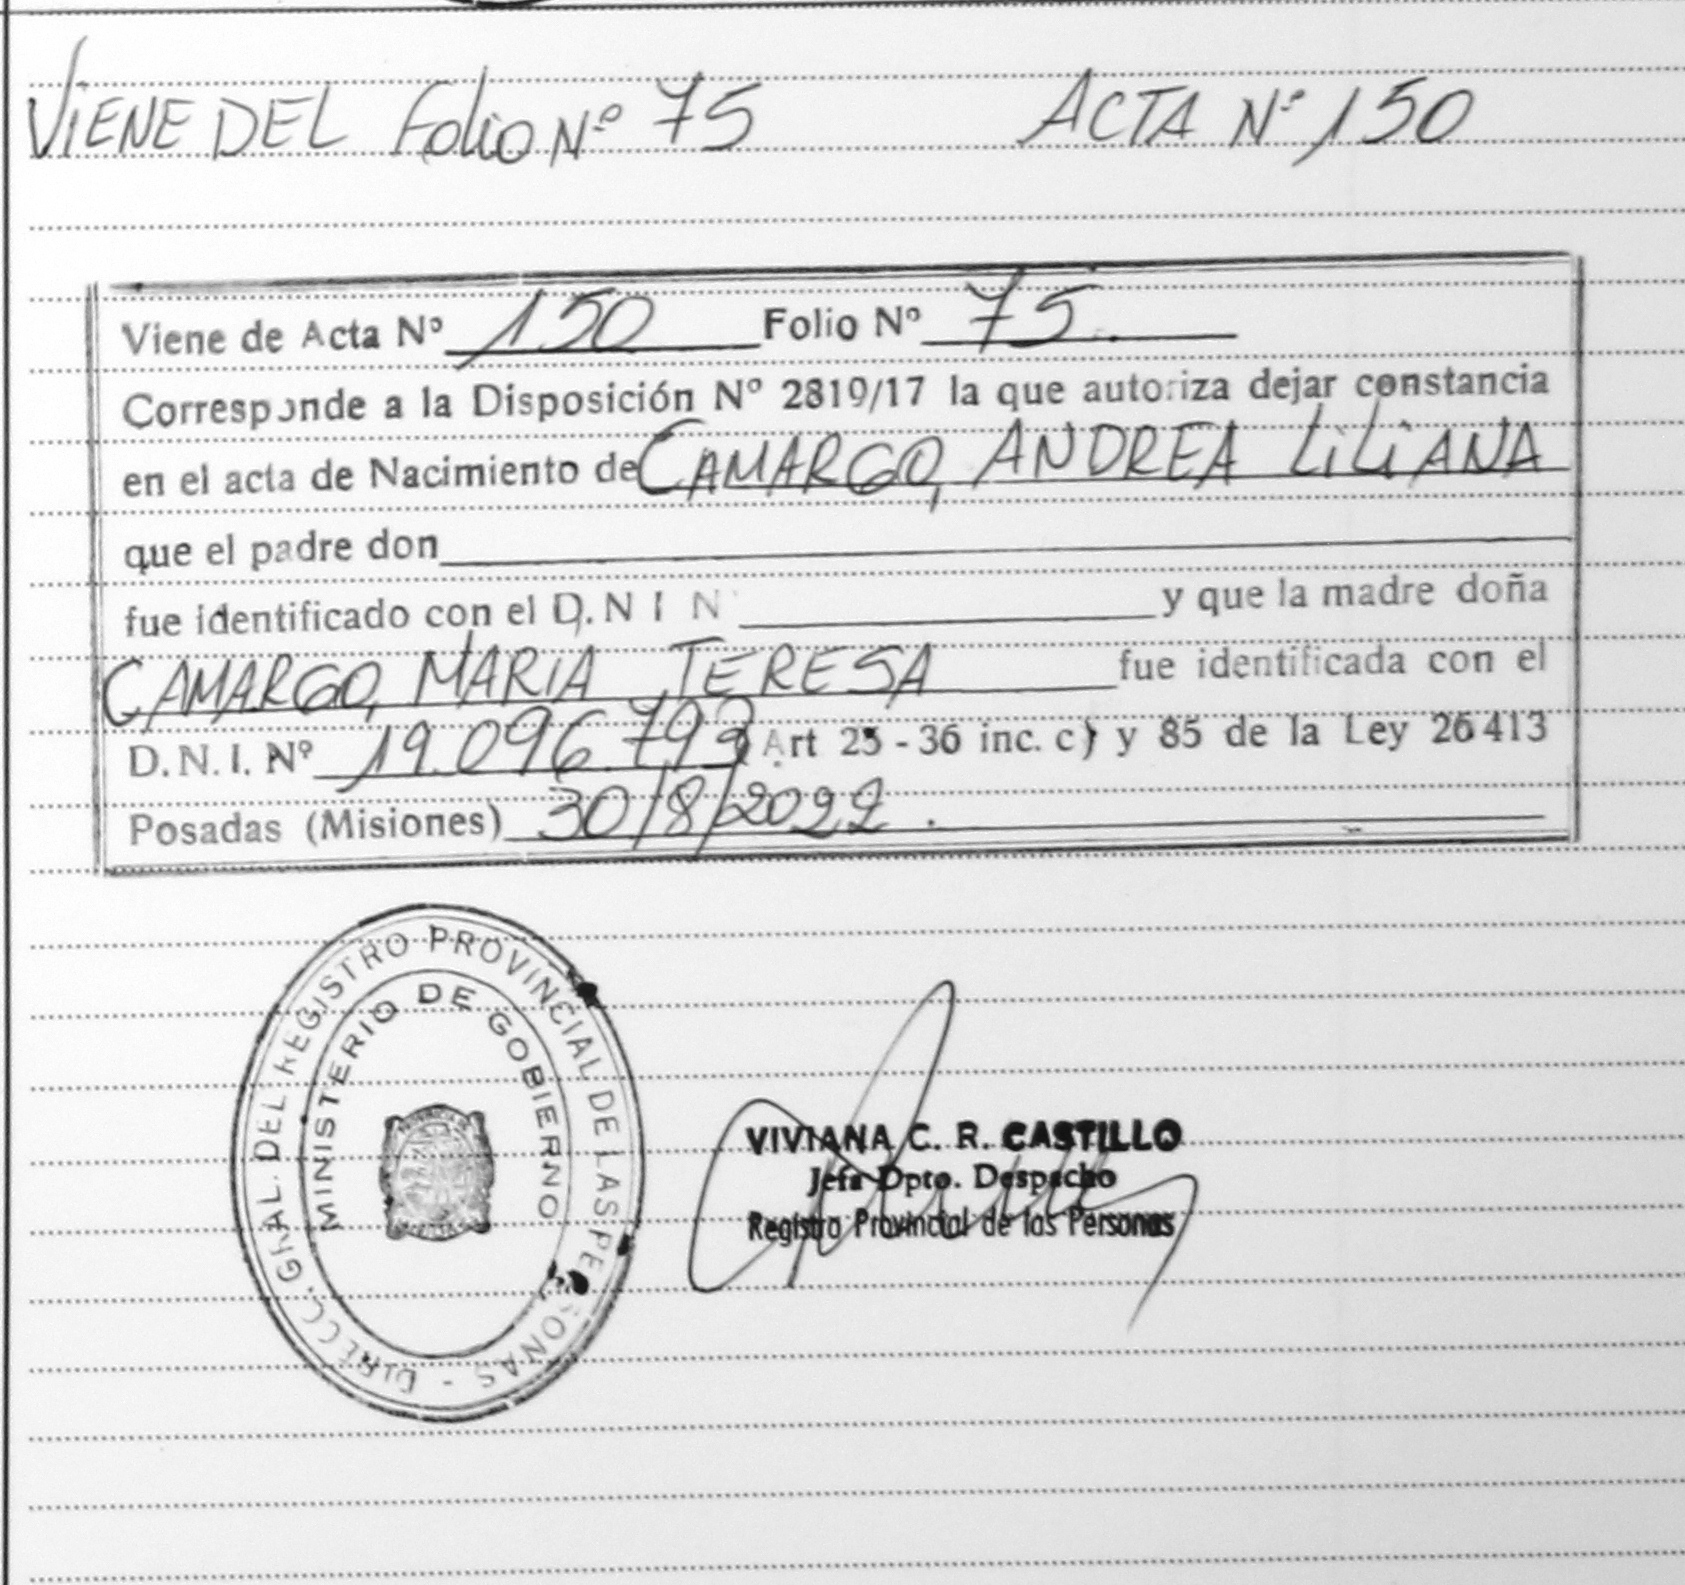 VIENE DEL Folio Nº 75 ACTA Nº 150
Viene de Acta Nº 150 Folio Nº 75.
Corresponde a la Disposición Nº 2819/17 la que autoriza dejar constancia
en el acta de Nacimiento de CAMARGO, ANDREA LILIANA
que el padre don
fue identificado con el D.N I N y que la madre doña
CAMARGO, MARIA TERESA fue identificada con el
D.N.I. Nº 19.096.793 (Art 25 - 36 inc. c) y 85 de la Ley 26413
Posadas (Misiones) 30/8/2022.
DIRECC. GRAL. DEL REGISTRO PROVINCIAL DE LAS PERSONAS -
MINISTERIO DE GOBIERNO
VIVIANA C. R. CASTILLO
Jefa Dpto. Despacho
Registro Provincial de las Personas